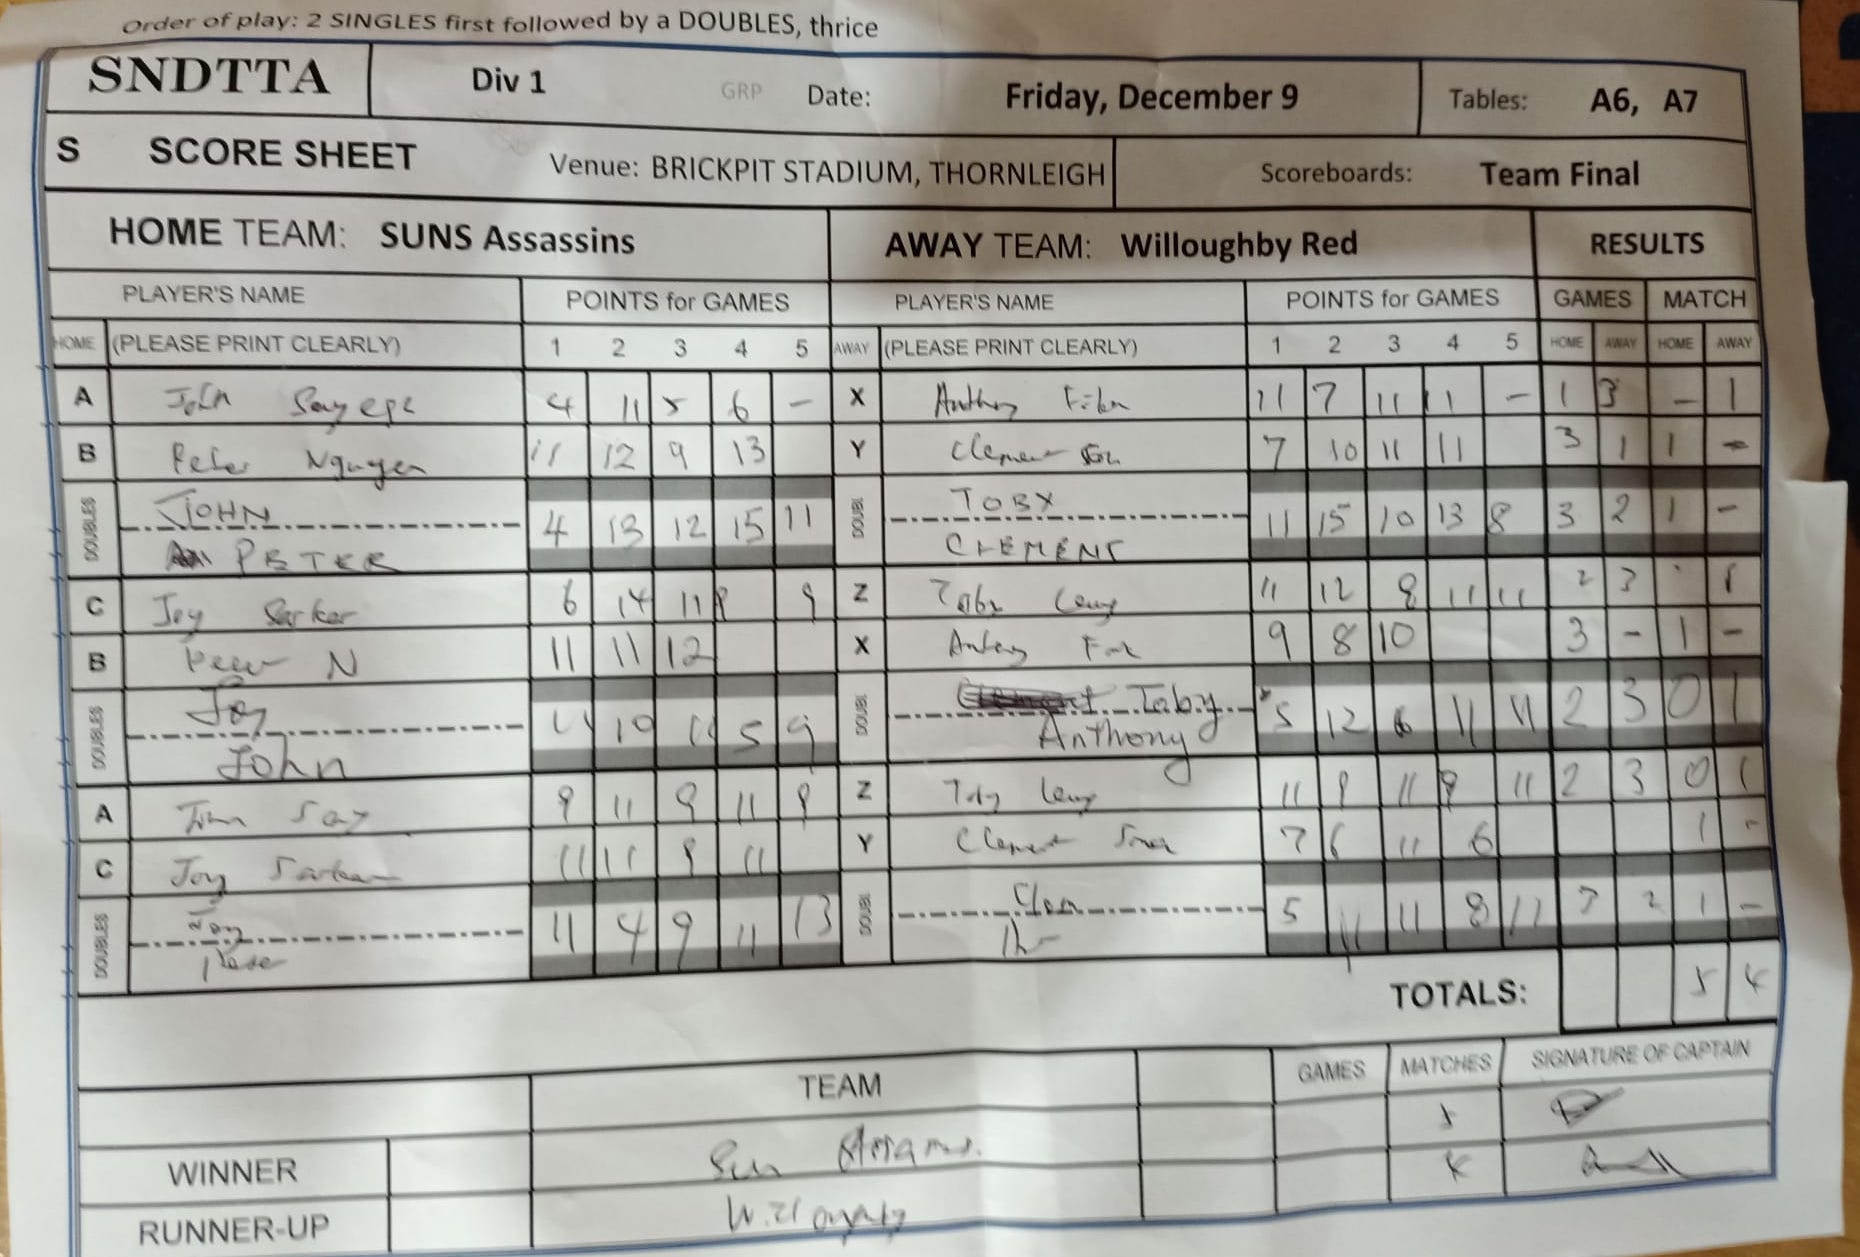 Order of play: 2 SINGLES first followed by a DOUBLES, thrice
SNDTTA Div 1 GRP Date: Friday, December 9 Tables: A6, A7
S SCORE SHEET Venue: BRICKPIT STADIUM, THORNLEIGH Scoreboards: Team Final
HOME TEAM: SUNS Assassins AWAY TEAM: Willoughby Red RESULTS
PLAYER'S NAME POINTS for GAMES PLAYER'S NAME POINTS for GAMES GAMES MATCH
HOME (PLEASE PRINT CLEARLY) 1 2 3 4 5 AWAY (PLEASE PRINT CLEARLY) 1 2 3 4 5 HOME AWAY HOME AWAY
A John 4 11 5 6 - X 11 7 11 11 - 1 3 - 1
B Peter Nguyen 11 12 9 13 Y Clement 7 10 11 11 3 1 1 -
DOUBLES JOHN 4 13 12 15 11 DOUBL TOBY 11 15 10 13 8 3 2 1 -
PETER CLEMENT
C Joy Sarker 6 14 11 8 9 Z Toby 11 12 8 11 11 2 3 1
B Peter N 11 11 12 X 9 8 10 3 - 1 -
DOUBLES Joy 11 10 11 5 9 DOUBL Toby 5 12 6 11 11 2 3 0 1
John Anthony
A 9 11 9 11 9 Z 11 9 11 9 11 2 3 0 1
C Joy Sarker 11 11 9 11 Y Clement 7 6 11 6 1 -
DOUBLES Joy 11 4 9 11 13 DOUBL Clem 5 11 11 8 11 3 2 1 -
TOTALS: 5 4
TEAM GAMES MATCHES SIGNATURE OF CAPTAIN
WINNER Sun 5
RUNNER-UP 4